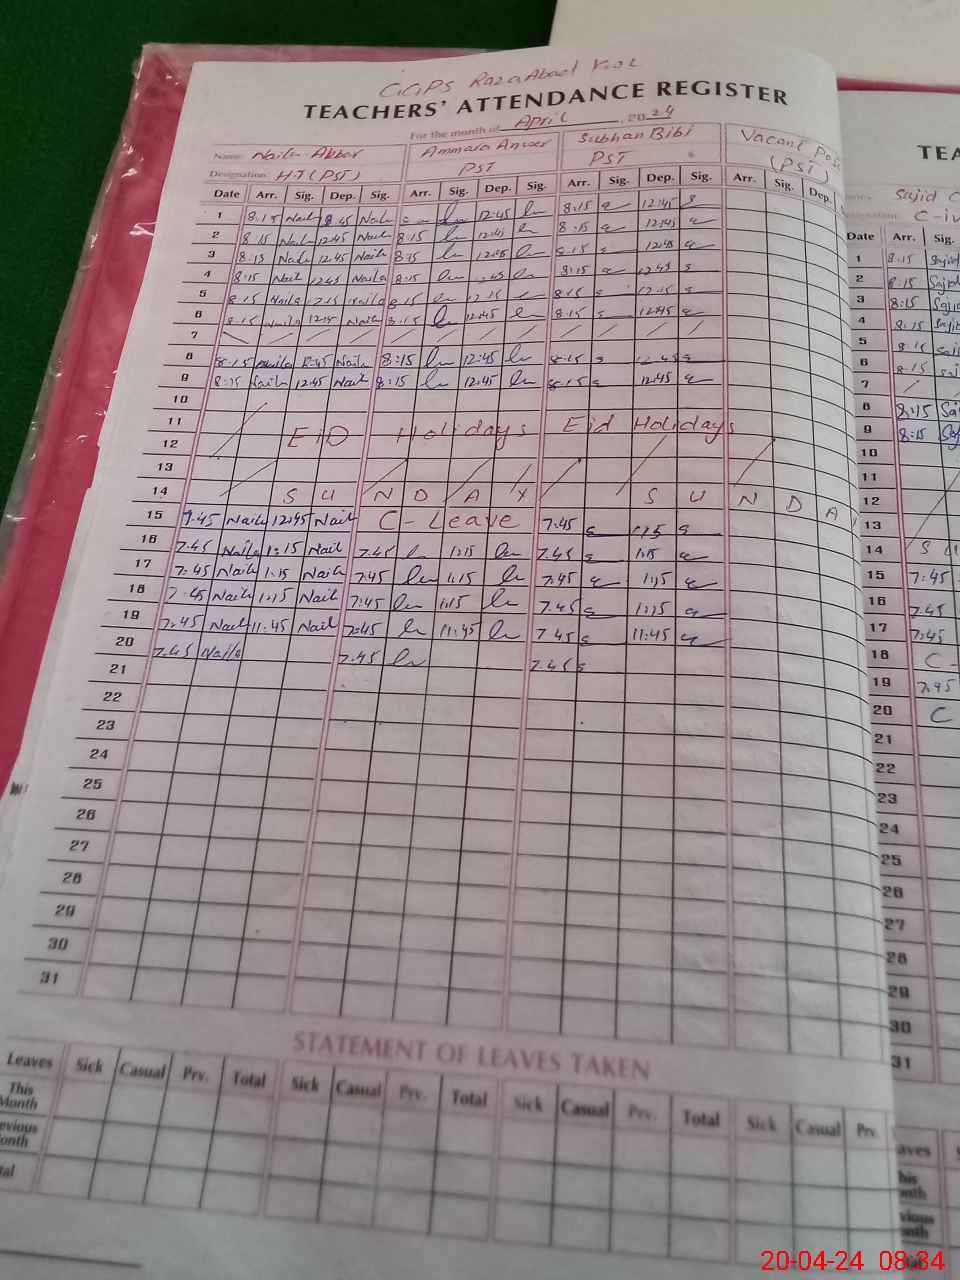 GGPS RazaAbad
TEACHERS' ATTENDANCE REGISTER
For the month of April, 2024
Name: Naila Akbar Ammara Anwer Subhan Bibi Vacant Post
Designation: H.T (PST) PST PST (PST)
Date Arr. Sig. Dep. Sig. Arr. Sig. Dep. Sig. Arr. Sig. Dep. Sig. Arr. Sig. Dep.
1 8:15 Nail 8:45 Nail 12:45 8:15 12:45
2 8:15 Naila 12:45 Naila 8:15 12:45 8:15 12:45
3 8:15 Naila 12:45 Naila 8:15 12:45 8:15 12:45
4 8:15 Nail 12:45 Naila 8:15 12:45 8:15 12:45
5 8:15 Naila 12:15 Naila 8:15 12:15 8:15 12:15
6 8:15 Naila 12:15 Naila 8:15 12:45 8:15 12:45
7
8 8:15 Naila 12:45 Naila 8:15 12:45 8:15 12:45
9 8:15 Naila 12:45 Nail 8:15 12:45 8:15 12:45
10
11
12 EID Holidays Eid Holidays
13
14 S U N D A Y S U N D A
15 7.45 Naila 12:45 Nail C- Leave 7.45
16 7.45 Naila 1:15 Nail 7.45 1:15 7.45 1:15
17 7:45 Naila 1:15 Naila 7:45 1:15 7.45 1:15
18 7.45 Nail 1:15 Nail 7:45 1:15 7.45 1:15
19 7:45 Nail 11:45 Nail 7:45 11:45 7.45 11:45
20 7.45 Naila 7.45 7.45
21
22
23
24
25
26
27
28
29
30
31
STATEMENT OF LEAVES TAKEN
Leaves Sick Casual Prv. Total Sick Casual Prv. Total Sick Casual Prv. Total Sick Casual Prv.
This Month
evious
onth
tal
TEA
Sajid
C-iv
Date Arr. Sig.
1 8:15 Sajid
2 8:15 Sajid
3 8:15 Sajid
4 8:15 Sajid
5 8:15 Saji
6 8:15 Saj
7
8 8:15 Saj
9 8:15 Saj
10
11
12
13
14 S U
15 7:45
16 7.45
17 7:45
18 C-
19 7.45
20 C
21
22
23
24
25
26
27
28
29
30
31
aves
his
onth
vious
onth
20-04-24 08:34